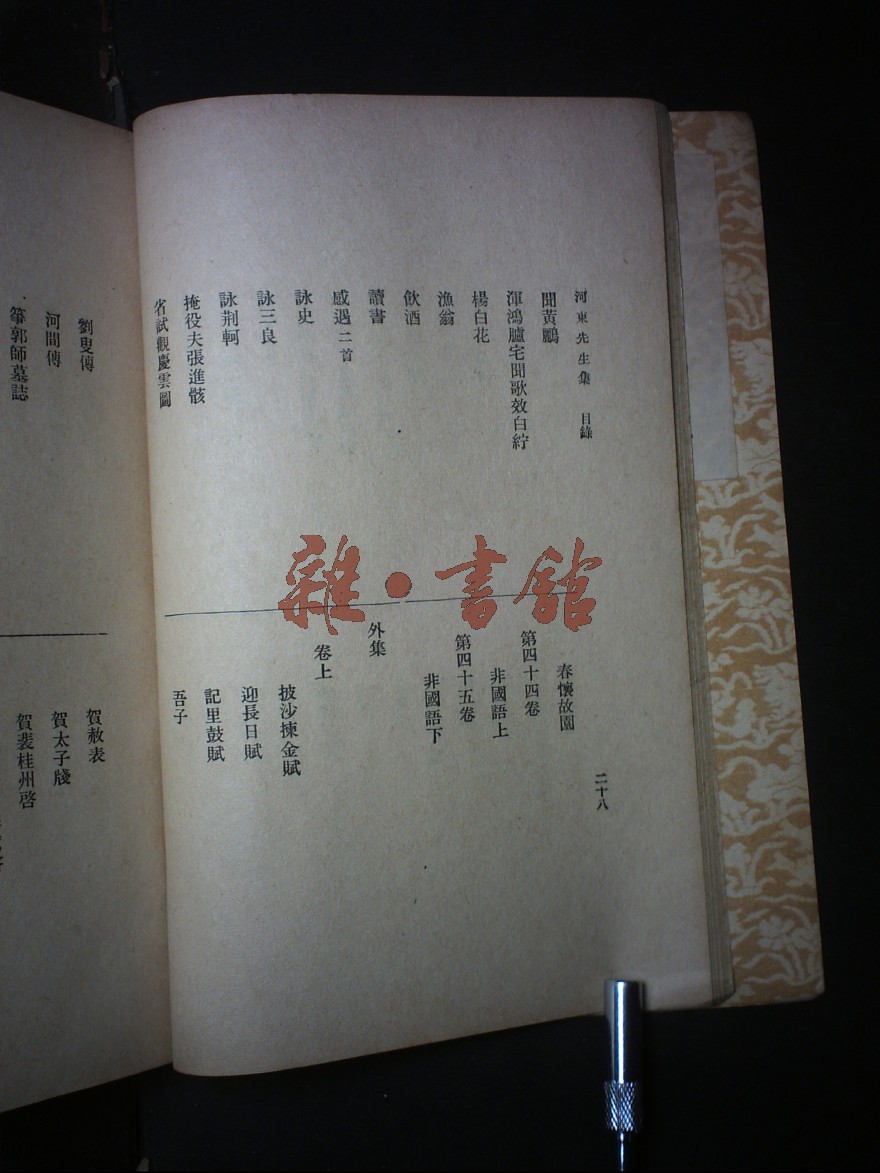 河東先生集 目錄
聞黃鸝
渾鴻臚宅聞歌效白紵
楊白花
漁翁
飲酒
讀書
感遇二首
詠史
詠三良
詠荆軻
掩役夫張進骸
省試觀慶雲圖
春懷故園
第四十四卷
非國語上
第四十五卷
非國語下
外集
卷上
披沙揀金賦
迎長日賦
記里鼓賦
吾子
二十八
劉叟傳
河間傳
筝郭師墓誌
賀赦表
賀太子牋
賀裴桂州啓
雜·書館